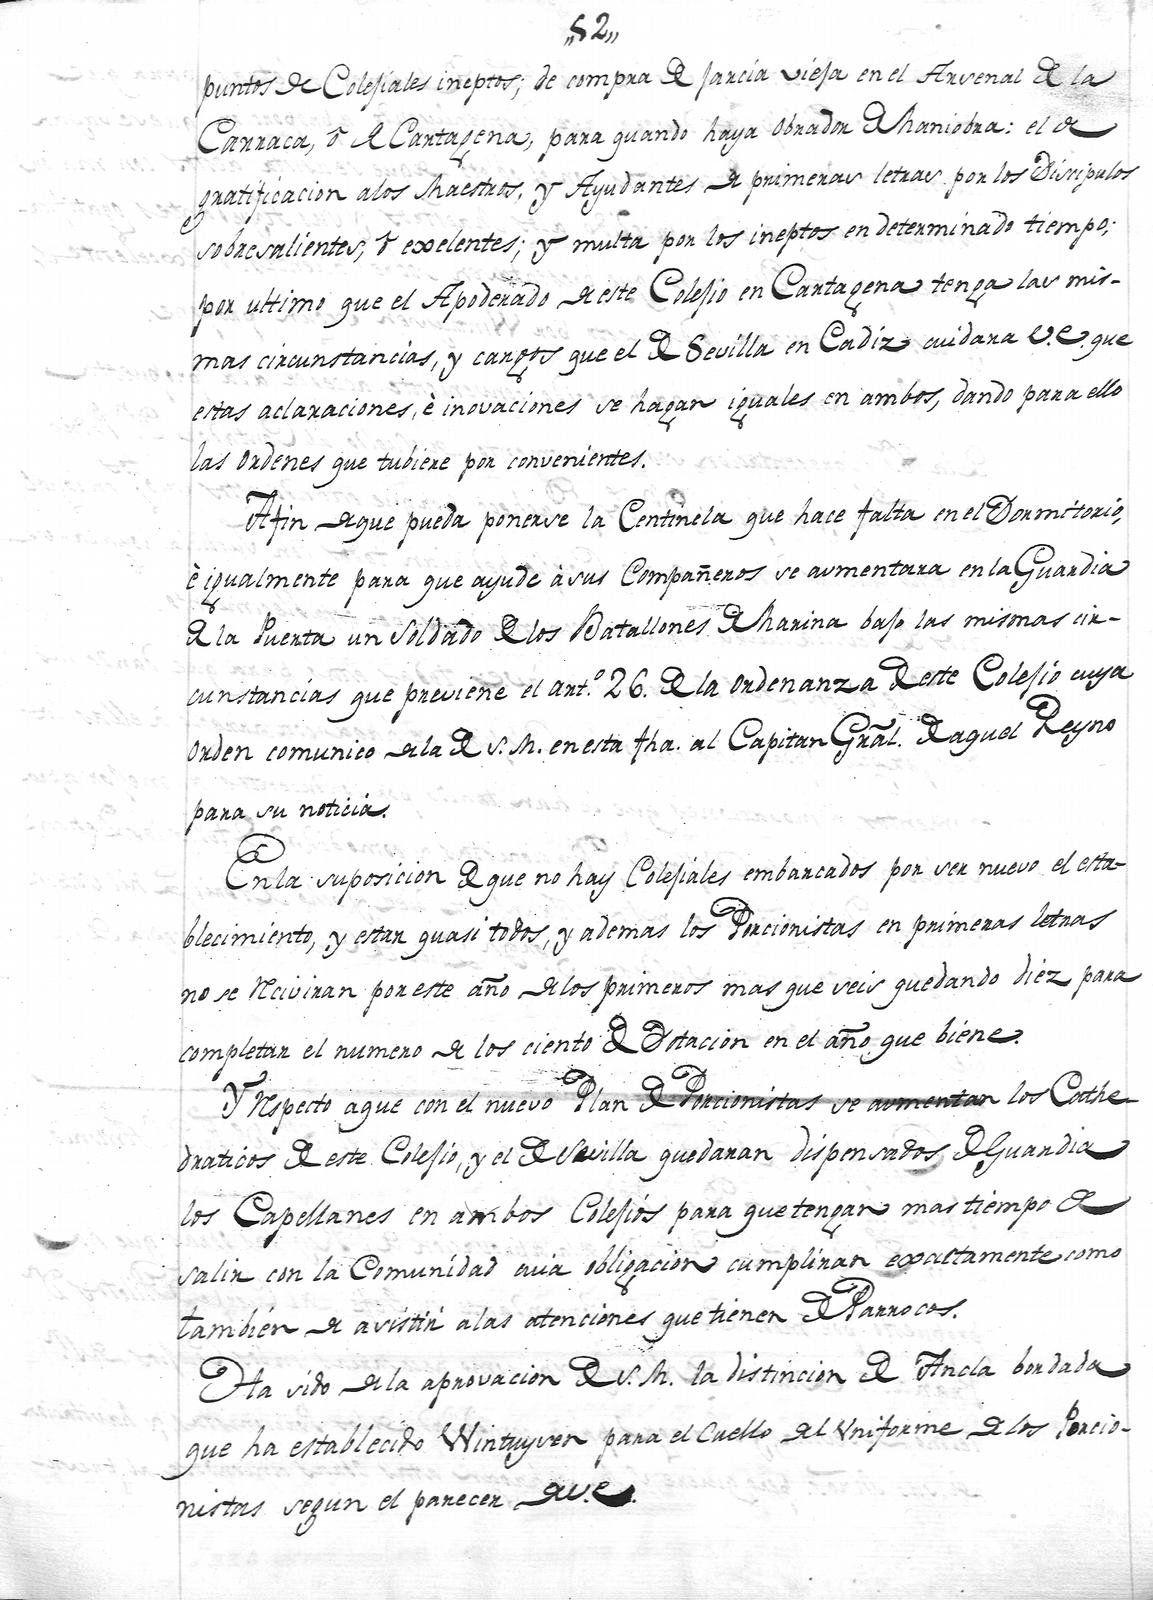 „52„
puntos de Colejiales ineptos; de compra de jarcia vieja en el Arsenal de la
Carraca, ô de Cartagena, para quando haya obrador de Maniobra: el de
gratificacion alos Maestros, y Ayudantes de primeras letras por los Disripulos
sobresalientes, ô exelentes; y multa por los ineptos en determinado tiempo;
por ultimo que el Apoderado de este Colejio en Cartagena tenga las mis-
mas circunstancias, y cargos que el de Sevilla en Cadiz cuidara V.E. que
estas aclaraciones, è inovaciones se hagan iguales en ambos, dando para ello
las ordenes que tubiere por convenientes.
Afin de que pueda ponerse la Centinela que hace falta en el Dormitorio,
è igualmente para que ayude à sus Compañeros se aumentara en la Guardia
de la Puerta un Soldado de los Batallones de Marina bajo las mismas cir-
cunstancias que previene el art.º 26. de la ordenanza de este Colejio cuya
orden comunico de la de S.M. en esta fha. al Capitan Grãl. de aquel Reyno
para su noticia.
En la suposicion de que no hay Colejiales embarcados por ser nuevo el esta-
blecimiento, y estar quasi todos, y ademas los Porcionistas en primeras letras
no se reciviran por este año de los primeros mas que seis quedando diez para
completar el numero de los ciento de Dotacion en el año que biene.
Y respecto aque con el nuevo Plan de Porcionistas se aumentan los Cathe-
draticos de este Colejio, y el de Sevilla quedaran dispensados de Guardia
los Capellanes en ambos Colejios para que tengan mas tiempo de
salir con la Comunidad cuia obligacion cumpliran exactamente como
tambien de asistir alas atenciones que tienen de Parrocos.
Ha sido de la aprovacion de S.M. la distincion de Ancla bordada
que ha establecido Wintuysen para el Cuello del Uniforme de los Porcio-
nistas segun el parecer de V.E.